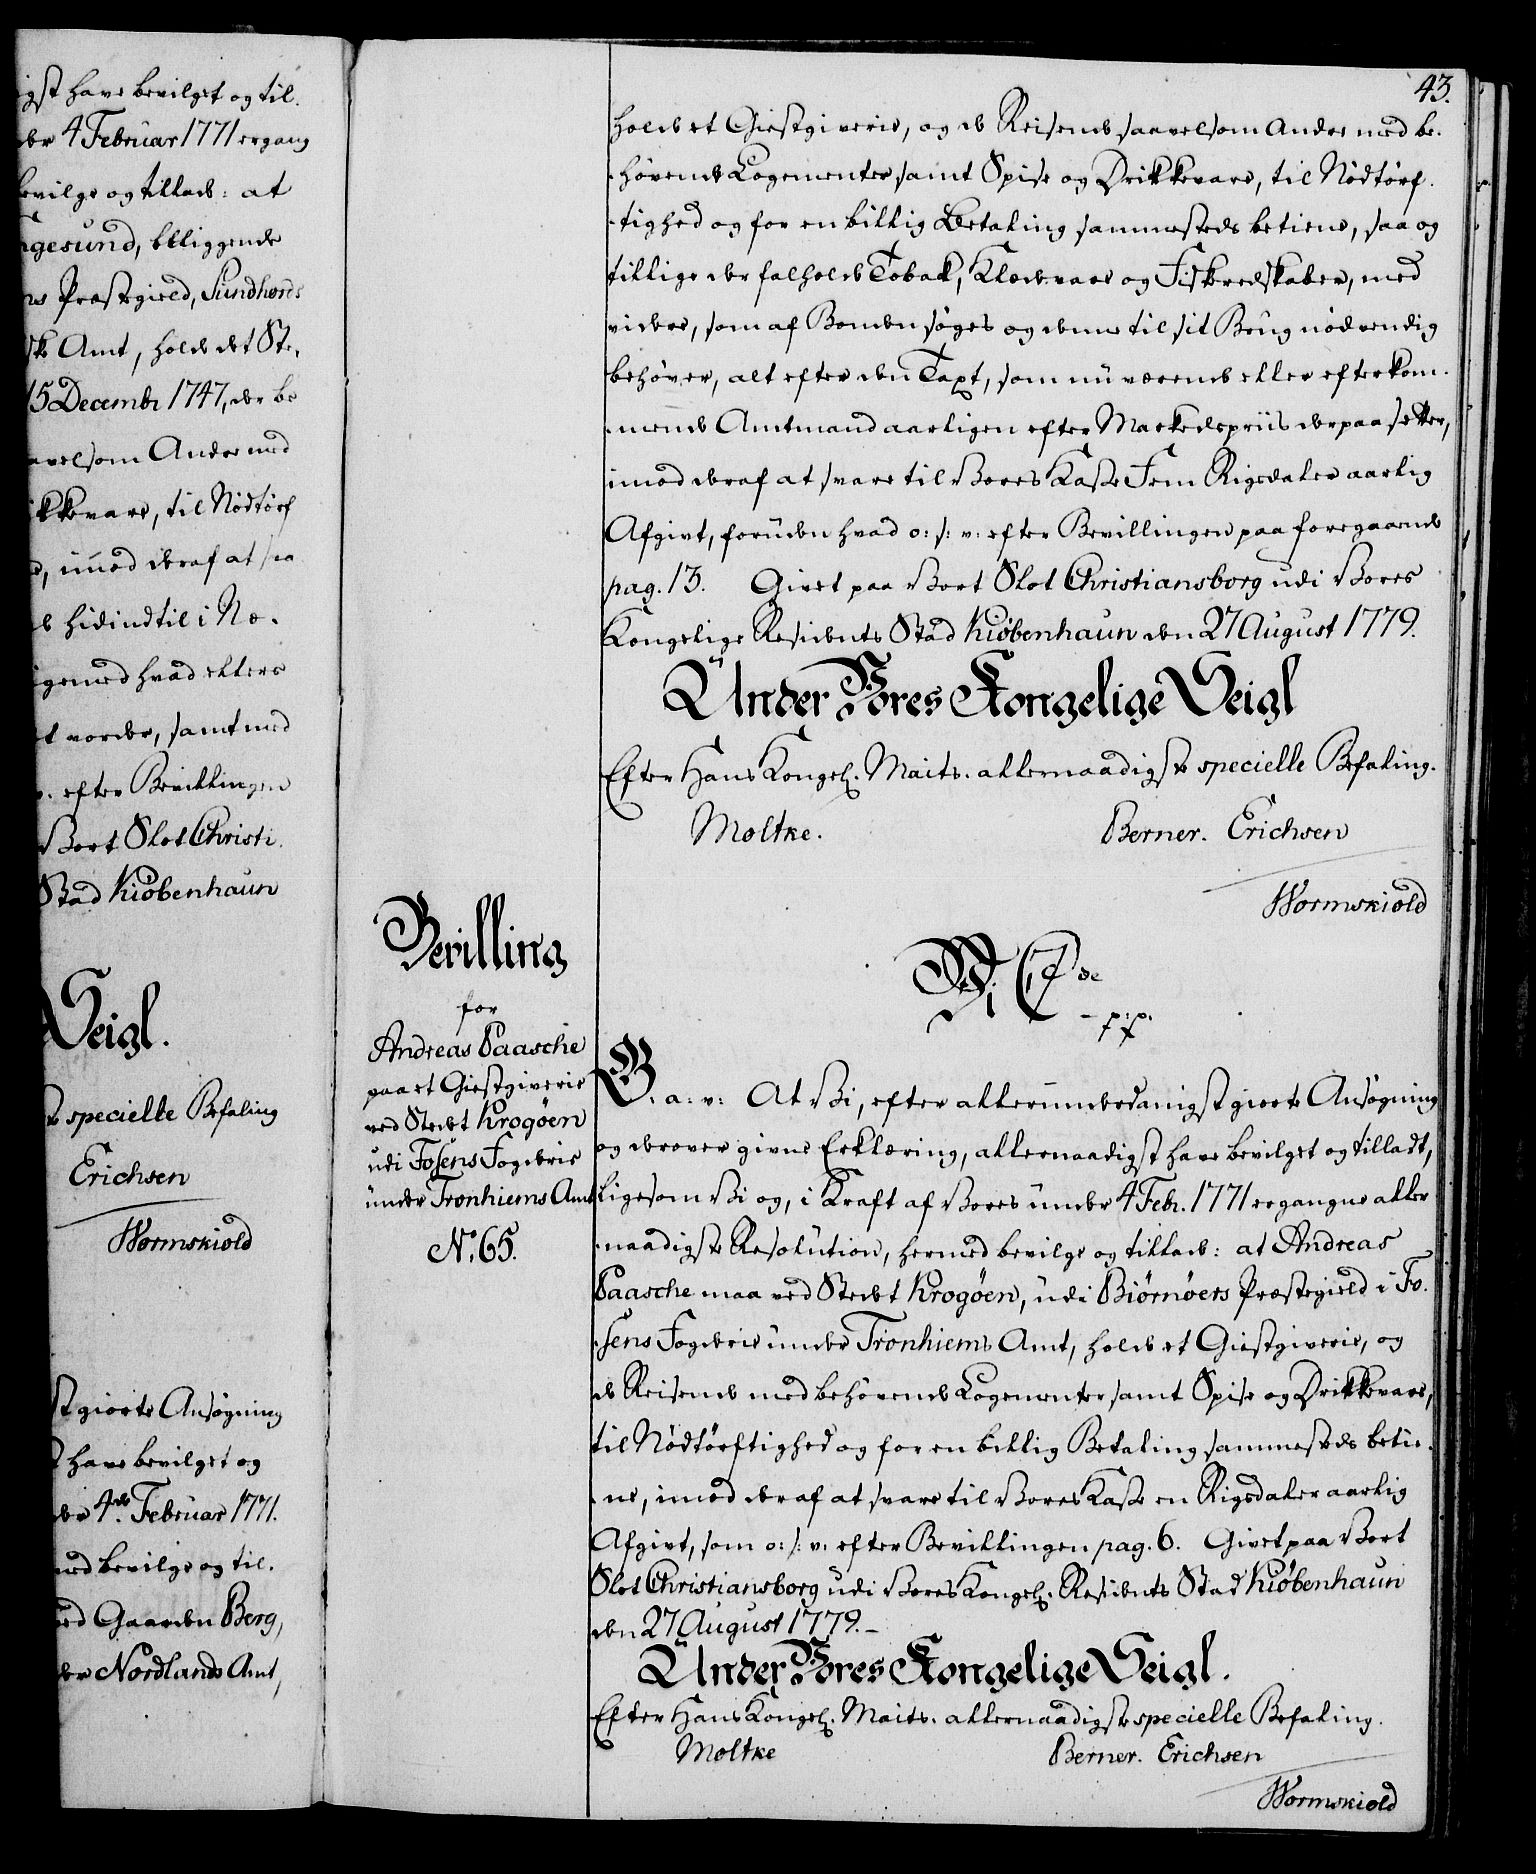 igst have bevilget og til.
der 4 Februar 1771 ergang
bevilge og tillade: at
gesund, beliggende
ns Præstegield, Sundhords
ske Amt, holde det Ste,
15 Decembr 1747, der be
avelsom Andre med
ikkevare, til Nødtørf
d, imod deraf at sva
de hidindtil i No.
igemed hvad ellers
et vorder, samt med
v. efter Bevillingen
Vort Slot Christi.
Stad Kiøbenhaun
Seigl.
specielle Befaling
Erichsen
Wormskiold
st giorte Ansøgning
have bevilget og
der 4de Februar 1771.
med bevilge og til.
ved Gaarden Berg,
der Nordlands Amt,
43.
holde et Giestgiverie, og de Reisende saavelsom Andre med be.
.høvende Logementer samt Spise og Drikkevare, til Nødtørf.
.tighed og for en billig Betaling sammesteds betiene, saa og
tillige der falholde Tobak, Kledevare og Fiskeredskaber, med
videre, som af Bonden søges og denne til sit Brug nødvendig
behøver, alt efter den Taxt, som nu værende eller efterkom.
.mende Amtmand aarligen efter Markedspriis derpaa sætter,
imod deraf at svare til Vores Kasse Fem Rigsdaler aarlig
Afgivt, foruden hvad o: s: v: efter Bevillingen paa foregaaende
pag. 13. Givet paa Vort Slot Christiansborg udi Vores
Kongelige Residents Stad Kiøbenhaun den 27 August 1779.
Under Vores Kongelige Seigl
Efter Hans Kongel. Maits. allernaadigste specielle Befaling.
Moltke. Berner. Erichsen
Wormskiold
Bevilling
for
Andreas Paasche
paa et Giestgiverie
ved Stedet Krogøen
udi Fosens Fogderie
under Tronhiems Amt
No. 65.
Wi C 7de
p.p.
G. a: v: At Vi, efter allerunderdanigst giorte Ansøgning
og derover givne Erklæring, allernaadigst have bevilget og tilladt,
ligesom Vi og, i Kraft af Vores under 4 Febr. 1771 ergangne aller
.naadigste Resolution, hermed bevilge og tillade: at Andreas
Paasche maa ved Stedet Krogøen, udi Biørnøers Præstegield i Fo.
.sens Fogderie under Tronhiems Amt, holde et Giestgiverie, og
de Reisende med behøvende Logementer samt Spise og Drikkevare,
til Nødtørftighed og for en billig Betaling sammesteds betie.
.ne, imod deraf at svare til Vores Kasse en Rigsdaler aarlig
Afgivt, som o: s: v: efter Bevillingen pag. 6. Givet paa Vort
Slot Christiansborg udi Vores Kongel. Residents Stad Kiøbenhaun
den 27 August 1779.
Under Vores Kongelige Seigl.
Efter Hans Kongel. Maits. allernaadigste specielle Befaling.
Moltke Berner. Erichsen
Wormskiold